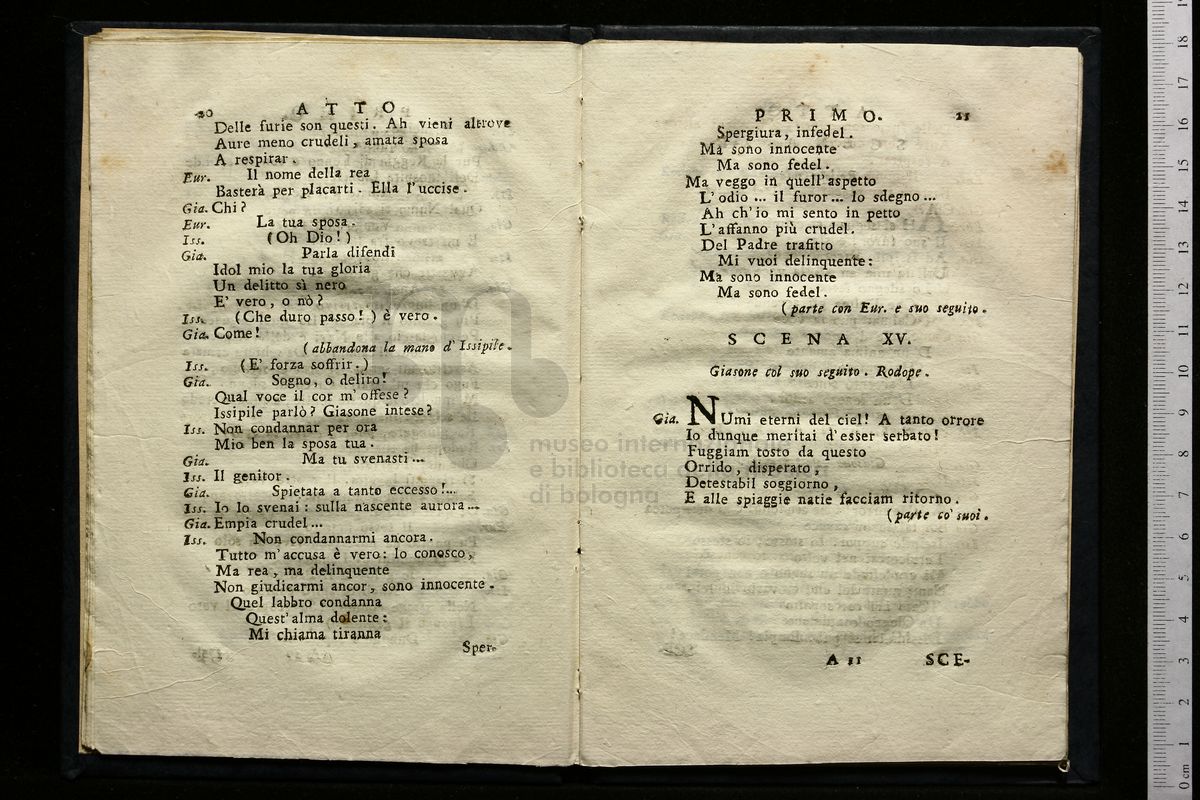 20 ATTO
Delle furie son questi. Ah vieni altrove
Aure meno crudeli, amata sposa
A respirar.
Eur. Il nome della rea
Basterà per placarti. Ella l'uccise.
Gia. Chi?
Eur. La tua sposa.
Iss. (Oh Dio!)
Gia. Parla difendi
Idol mio la tua gloria
Un delitto sì nero
E' vero, o nò?
Iss. (Che duro passo!) è vero.
Gia. Come!
(abbandona la mano d'Issipile.
Iss. (E' forza soffrir.)
Gia. Sogno, o deliro!
Qual voce il cor m'offese?
Issipile parlò? Giasone intese?
Iss. Non condannar per ora
Mio ben la sposa tua.
Gia. Ma tu svenasti...
Iss. Il genitor.
Gia. Spietata a tanto eccesso!...
Iss. Io lo svenai: sulla nascente aurora...
Gia. Empia crudel...
Iss. Non condannarmi ancora.
Tutto m'accusa è vero: Io conosco,
Ma rea, ma delinquente
Non giudicarmi ancor, sono innocente.
Quel labbro condanna
Quest'alma dolente:
Mi chiama tiranna
Sper-
PRIMO. 21
Spergiura, infedel.
Ma sono innocente
Ma sono fedel.
Ma veggo in quell'aspetto
L'odio ... il furor... lo sdegno...
Ah ch'io mi sento in petto
L'affanno più crudel.
Del Padre trafitto
Mi vuoi delinquente:
Ma sono innocente
Ma sono fedel.
(parte con Eur. e suo seguito.
SCENA XV.
Giasone col suo seguito. Rodope.
Gia. NUmi eterni del ciel! A tanto orrore
Io dunque meritai d'esser serbato!
Fuggiam tosto da questo
Orrido, disperato,
Detestabil soggiorno,
E alle spiaggie natie facciam ritorno.
(parte co' suoi.
A 11 SCE-
museo internazionale
e biblioteca della musica
di bologna